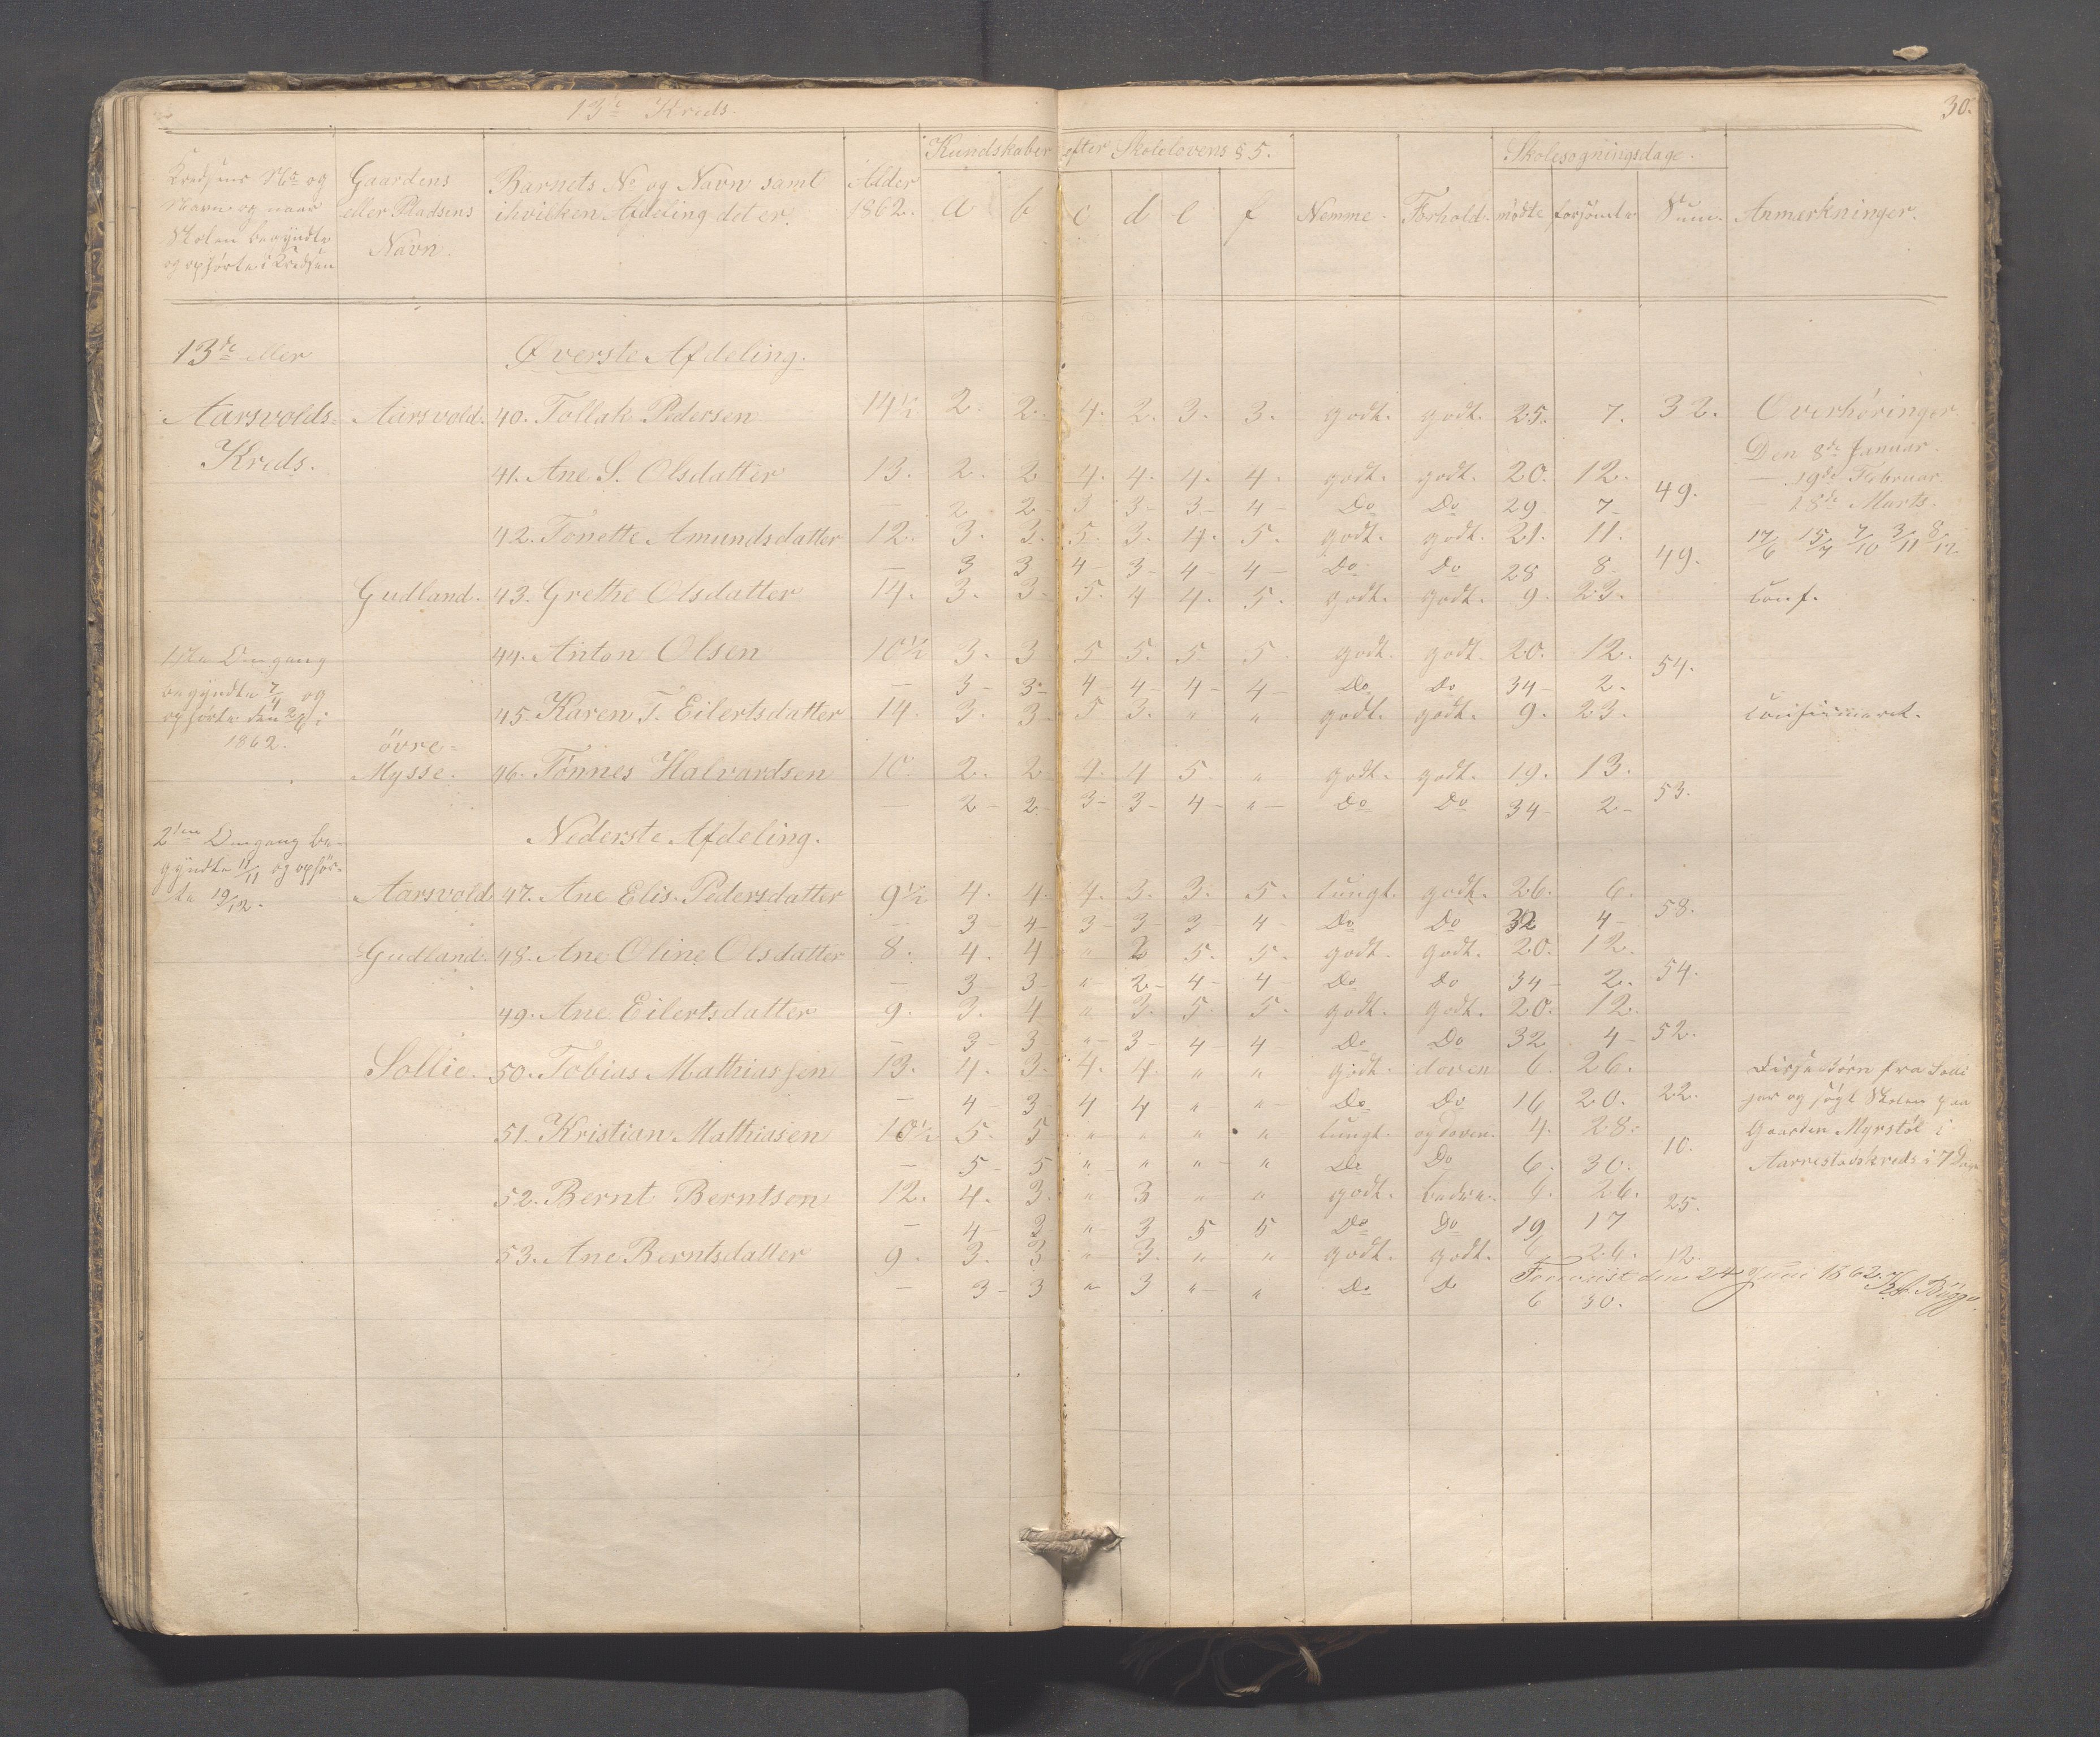 13de Kreds.
30.
Kredsens No og Navn og naar Skolen begyndte og ophørte i Kredsen
Gaardens eller Pladsens Navn.
Barnets No og Navn samt ihvilken Afdeling det er.
Alder 1862.
Kundskaber efter Skolelovens § 5.
a b c d e f
Nemme.
Forhold.
Skolesøgningsdage.
mødte
forsømte
Sum.
Anmærkninger.
13de eller
Øverste Afdeling.
Aarsvolds- Aarsvold. 40. Tollak Pedersen 14½ 2. 2. 4. 2. 3. 3. godt. godt. 25. 7. 32. Overhøringer.
Kreds.
Den 8de Januar.
41. Ane S. Olsdatter 13. 2. 2 4. 4. 4. 4. godt. godt. 20. 12.
— 19de Februar
— 2 2 3 3 3 4 Do Do 29 7 49.
— 18de Marts.
42. Tonette Amundsdatter 12. 3. 3. 5. 3. 4. 5. godt. godt. 21. 11.
17/6 15/7 7/10 3/11 8/12.
— 3 3 4 3 4 4 Do Do 28 8 49.
Gudland. 43. Grethe Olsdatter 14. 3. 3 5. 4 4. 5. godt. godt. 9. 23. Conf.
44. Anton Olsen 10½ 3. 3 5 5. 5 5 godt. godt. 20. 12.
1ste Omgang
— 3 3 4 4 4 4 Do Do 34 2. 54.
begyndte 7/1 og
ophørte den
45. Karen T. Eilertsdatter 14. 3. 3 5 3. " " godt. godt. 9. 23. Confirmeret.
1862.
øvre-
Mysse. 46. Tønnes Halvardsen 10. 2. 2 4. 4 5. " godt. godt. 19. 13.
— 2 2 3 3 4 " Do Do 34 2 53.
2den Omgang be-
gyndte 11/11 og ophør-
te 19/12.
Nederste Afdeling.
Aarsvold 47. Ane Elis. Pedersdatter 9½ 4. 4. 4. 3. 3. 5. tungt. godt. 26. 6.
— 3 4 3 3 3 4 Do Do 32 4 58.
Gudland. 48. Ane Oline Olsdatter 8. 4. 4 " 2 5. 5. godt. godt. 20. 12.
— 3 3 " 2 4 4 Do Do 34 2. 54.
49. Ane Eilertsdatter 9. 3. 4 " 3. 5. 5. godt. godt. 20. 12.
— 3 3 " 3 4 4 Do Do 32 4 52.
Sollie. 50. Tobias Mathiassen 13. 4. 3. 4. 4. " " godt. doven 6. 26. Disse Børn fra Solli
— 4 3 4 4 " " Do Do 16 20. 22.
har og søgt Skolen paa
51. Kristian Mathiasen 10½ 5. 5 " " " " tungt. og doven. 4. 28.
Gaarden Myrstøl i
— 5 5 " " " " Do Do 6. 30. 10.
Aarrestadkreds i 7 Dage
52. Bernt Berntsen 12. 4. 3. " 3 " " godt. bedre. 6. 26.
— 4 3 " 3 5 5 Do Do 19 17 25.
53. Ane Berntsdatter 9. 3. 3 " 3. " " godt. godt. 6 26. 12
Foreviist den 24 Juni 1862.
— 3 3 " 3 " " Do Do 6 30.